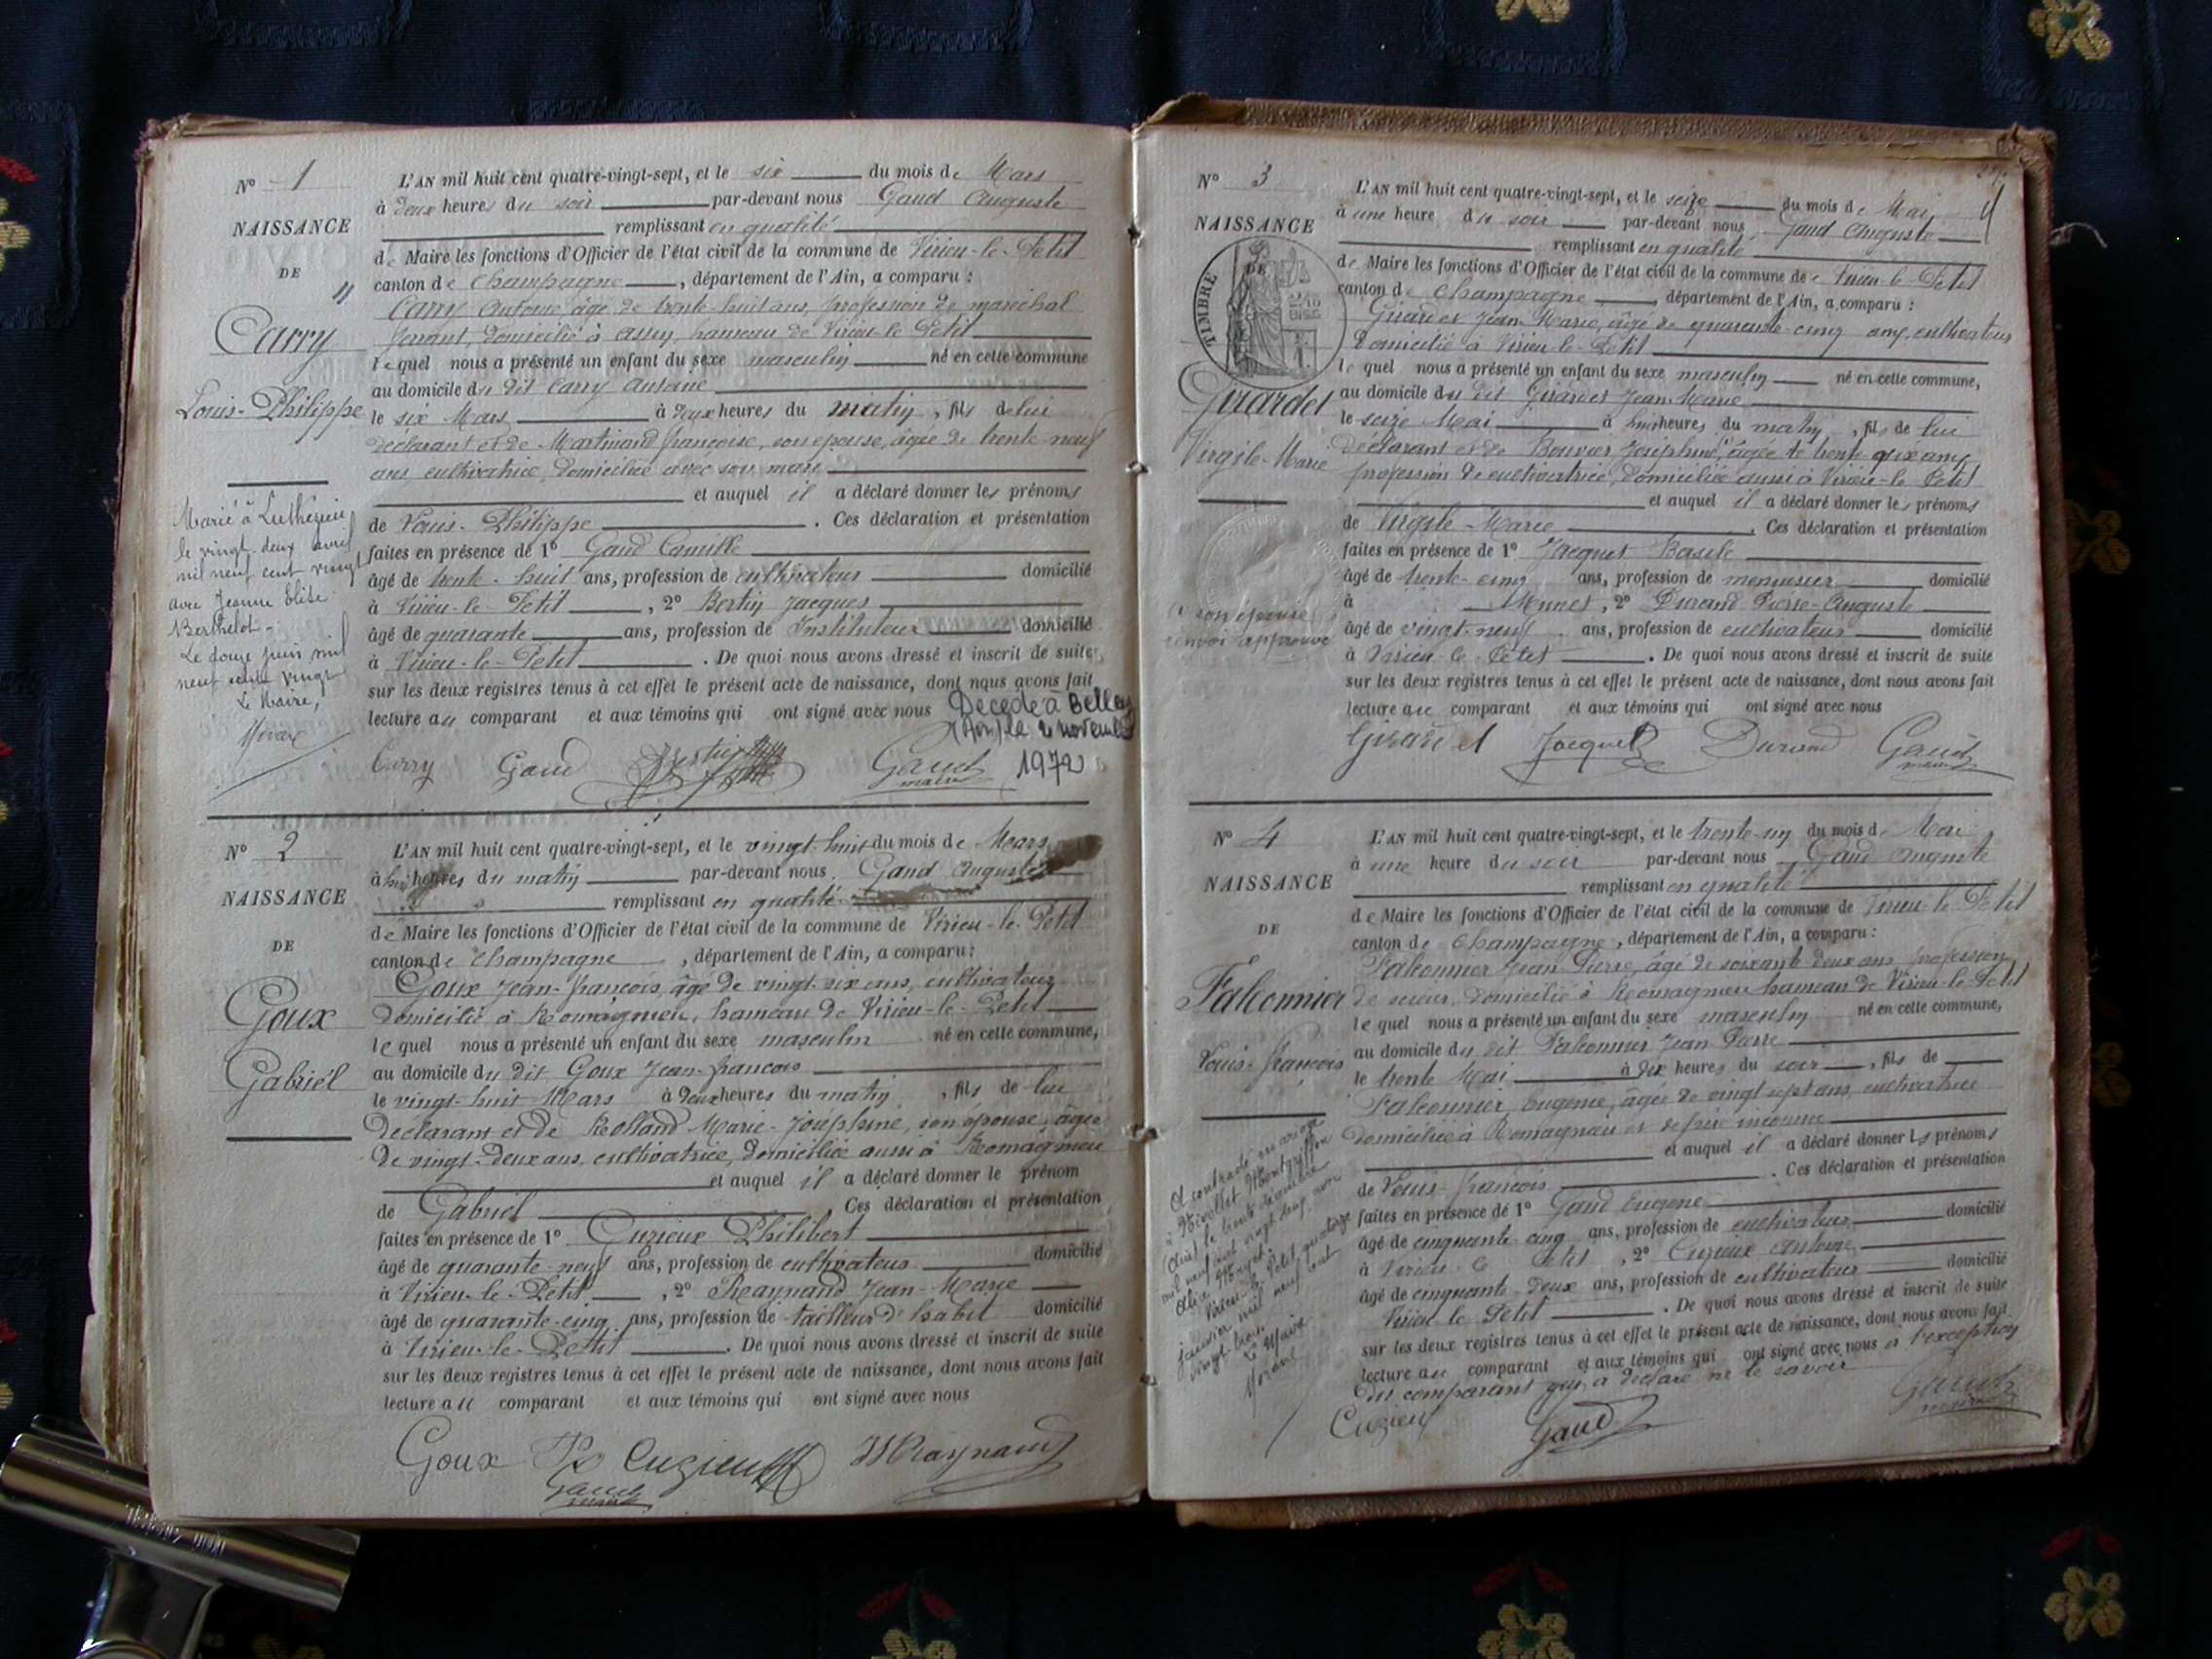 N° 1
NAISSANCE
DE
Carry
Louis-Philippe
L'AN mil huit cent quatre-vingt-sept, et le six du mois de Mars
à deux heures du soir par-devant nous Gaud Auguste
remplissant en qualité
de Maire les fonctions d'Officier de l'état civil de la commune de Virieu-le-Petit
canton de Champagne, département de l'Ain, a comparu :
Carry Antoine, âgé de trente-huit ans, profession de maréchal
ferrant, domicilié à Assin, hameau de Virieu-le-Petit
lequel nous a présenté un enfant du sexe masculin né en cette commune
au domicile du dit Carry Antoine
le six Mars à deux heures du matin, fils de lui
déclarant et de Martinand françoise, son épouse, âgée de trente-neuf
ans cultivatrice, domiciliée avec son mari
et auquel il a déclaré donner les prénoms
de Louis-Philippe. Ces déclaration et présentation
faites en présence de 1° Gaud Camille
âgé de trente-huit ans, profession de cultivateur domicilié
à Virieu-le-Petit, 2° Bertin Jacques
âgé de quarante ans, profession de Instituteur domicilié
à Virieu-le-Petit. De quoi nous avons dressé et inscrit de suite
sur les deux registres tenus à cet effet le présent acte de naissance, dont nous avons fait
lecture au comparant et aux témoins qui ont signé avec nous
Décédé à Belley
(Ain) le 2 novembre
1972
Carry Gaud Bertin Gaud
maire
Marié à Luthézieu
le vingt-deux avril
mil neuf cent vingt
avec Jeanne Elise
Berthelot.
Le douze juin mil
neuf cent vingt
Le Maire,
N° 2
NAISSANCE
DE
Goux
Gabriel
L'AN mil huit cent quatre-vingt-sept, et le vingt-huit du mois de Mars
à huit heures du matin par-devant nous Gaud Auguste
remplissant en qualité
de Maire les fonctions d'Officier de l'état civil de la commune de Virieu-le-Petit
canton de Champagne, département de l'Ain, a comparu :
Goux Jean-françois, âgé de vingt-six ans, cultivateur
domicilié à Romagnieu, hameau de Virieu-le-Petit
lequel nous a présenté un enfant du sexe masculin né en cette commune,
au domicile du dit Goux Jean-françois
le vingt-huit Mars à deux heures du matin, fils de lui
déclarant et de Rolland Marie-Joséphine, son épouse, âgée
de vingt-deux ans, cultivatrice, domiciliée aussi à Romagnieu
et auquel il a déclaré donner le prénom
de Gabriel Ces déclaration et présentation
faites en présence de 1° Cuzieux Philibert
âgé de quarante-neuf ans, profession de cultivateur domicilié
à Virieu-le-Petit, 2° Raynaud Jean-Marie
âgé de quarante-cinq ans, profession de tailleur d'habit domicilié
à Virieu-le-Petit. De quoi nous avons dressé et inscrit de suite
sur les deux registres tenus à cet effet le présent acte de naissance, dont nous avons fait
lecture au comparant et aux témoins qui ont signé avec nous
Goux Cuzieux Raynaud
Gaud
maire
N° 3
NAISSANCE
TIMBRE
DE
Girardet
Virgile-Marie
L'AN mil huit cent quatre-vingt-sept, et le seize du mois de Mai
à une heure du soir par-devant nous Gaud Auguste
remplissant en qualité
de Maire les fonctions d'Officier de l'état civil de la commune de Virieu-le-Petit
canton de Champagne, département de l'Ain, a comparu :
Girardet Jean-Marie, âgé de quarante-cinq ans, cultivateur
domicilié à Virieu-le-Petit
lequel nous a présenté un enfant du sexe masculin né en cette commune,
au domicile du dit Girardet Jean-Marie
le seize Mai à huit heures du matin, fils de lui
déclarant et de Bouvier Joséphine, (1) âgée de trente ans
profession de cultivatrice, domiciliée aussi à Virieu-le-Petit
et auquel il a déclaré donner les prénoms
de Virgile-Marie. Ces déclaration et présentation
faites en présence de 1° Jacquet Basile
âgé de trente-cinq ans, profession de menuisier domicilié
à Munet, 2° Durand Pierre-Auguste
âgé de vingt-neuf ans, profession de cultivateur domicilié
à Virieu-le-Petit. De quoi nous avons dressé et inscrit de suite
sur les deux registres tenus à cet effet le présent acte de naissance, dont nous avons fait
lecture au comparant et aux témoins qui ont signé avec nous
Girardet Jacquet Durand Gaud
maire
(1) son épouse
renvoi approuvé
N° 4
NAISSANCE
DE
Falconnier
Louis-françois
L'AN mil huit cent quatre-vingt-sept, et le trente-un du mois de Mai
à une heure du soir par-devant nous Gaud Auguste
remplissant en qualité
de Maire les fonctions d'Officier de l'état civil de la commune de Virieu-le-Petit
canton de Champagne, département de l'Ain, a comparu :
Falconnier Jean-Pierre, âgé de soixante-deux ans profession
de scieur, domicilié à Romagnieu hameau de Virieu-le-Petit
lequel nous a présenté un enfant du sexe masculin né en cette commune,
au domicile du dit Falconnier Jean-Pierre
le trente Mai à dix heures du soir, fils de
Falconnier, Eugénie, âgée de vingt-sept ans, cultivatrice
domiciliée à Romagnieu et de père inconnu
et auquel il a déclaré donner les prénoms
de Louis-françois. Ces déclaration et présentation
faites en présence de 1° Gaud Eugène
âgé de cinquante-cinq ans, profession de cultivateur domicilié
à Virieu-le-Petit, 2° Cuzieux Antoine
âgé de cinquante-deux ans, profession de cultivateur domicilié
Virieu-le-Petit. De quoi nous avons dressé et inscrit de suite
sur les deux registres tenus à cet effet le présent acte de naissance, dont nous avons fait
lecture au comparant et aux témoins qui ont signé avec nous à l'exception
du comparant qui a déclaré ne le savoir
Cuzieux Gaud Gaud
maire
A contracté mariage
à
(Ain) le trente décembre
mil neuf cent vingt-deux avec
Alice
Virieu-le-Petit, quatorze
janvier mil neuf cent
vingt-trois
Le Maire